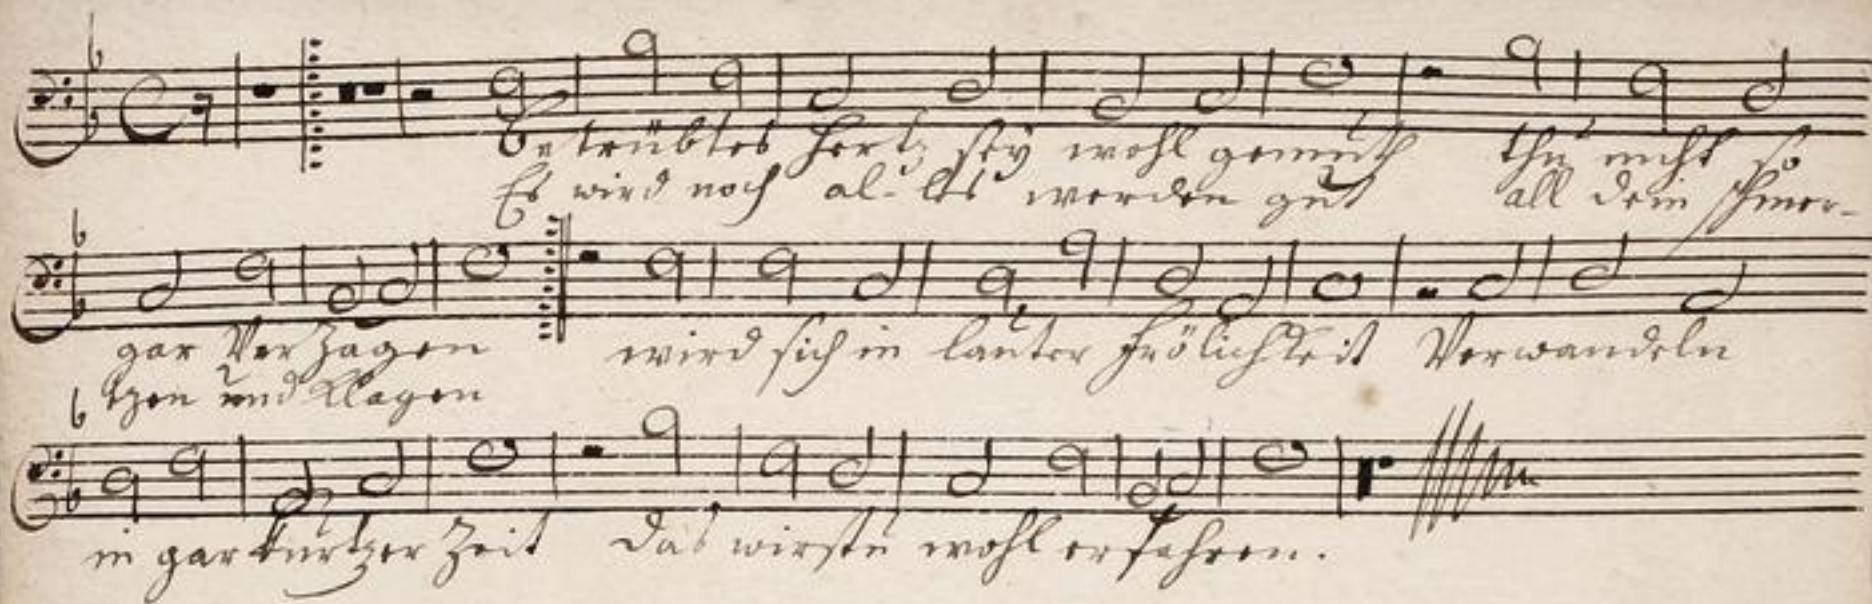 Betrübtes hertz sey wohl gemuth thu nicht so
Es wird noch al-les werden gut all dein schmer-
gar Verzagen wird sich in lauter frölichkeit Verwandeln
tzen und klagen
in gar kurtzer Zeit das wirstu wohl erfahren.